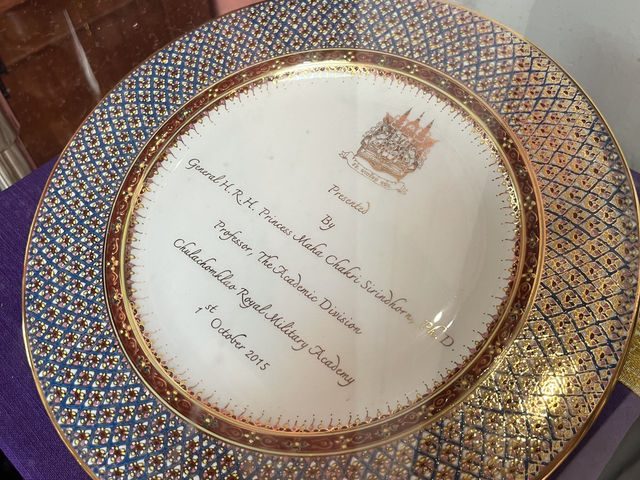 Presented
By
General H.R.H. Princess Maha Chakri Sirindhorn, Ph.D
Professor, The Academic Division
Chulachomklao Royal Military Academy
1st October 2015